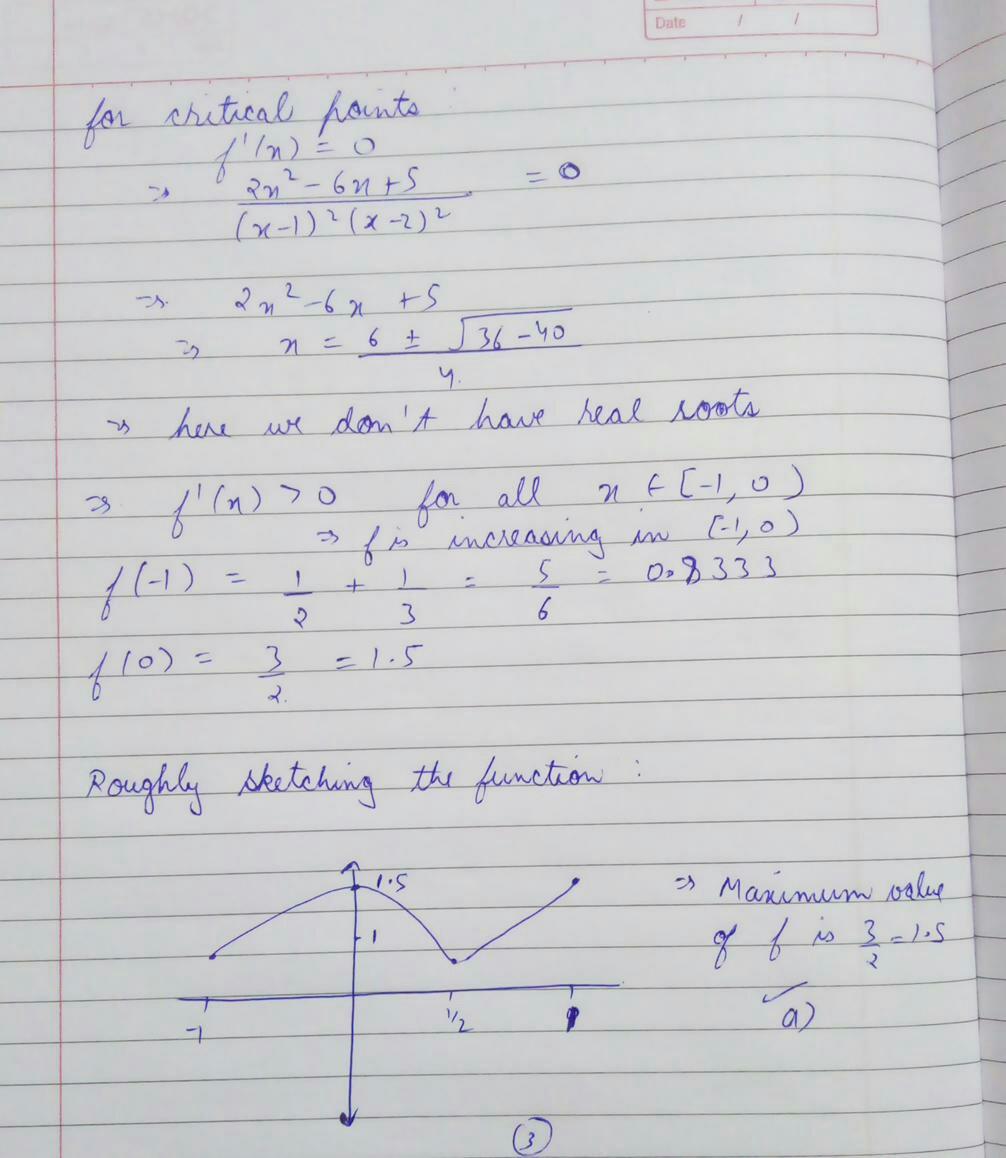 Date / /
for critical points
f'(x) = 0
⇒ 2x² - 6x + 5 = 0
(x-1)² (x-2)²
⇒ 2x² - 6x + 5
⇒ x = 6 ± √36 - 40
4.
⇒ here we don't have real roots
⇒ f'(x) > 0 for all x ∈ [-1, 0)
⇒ f is increasing in [-1, 0)
f(-1) = 1/2 + 1/3 = 5/6 = 0.8333
f(0) = 3/2 = 1.5
Roughly sketching the function :
1.5
1
-1 1/2
⇒ Maximum value
of f is 3/2 = 1.5
✓ a)
3